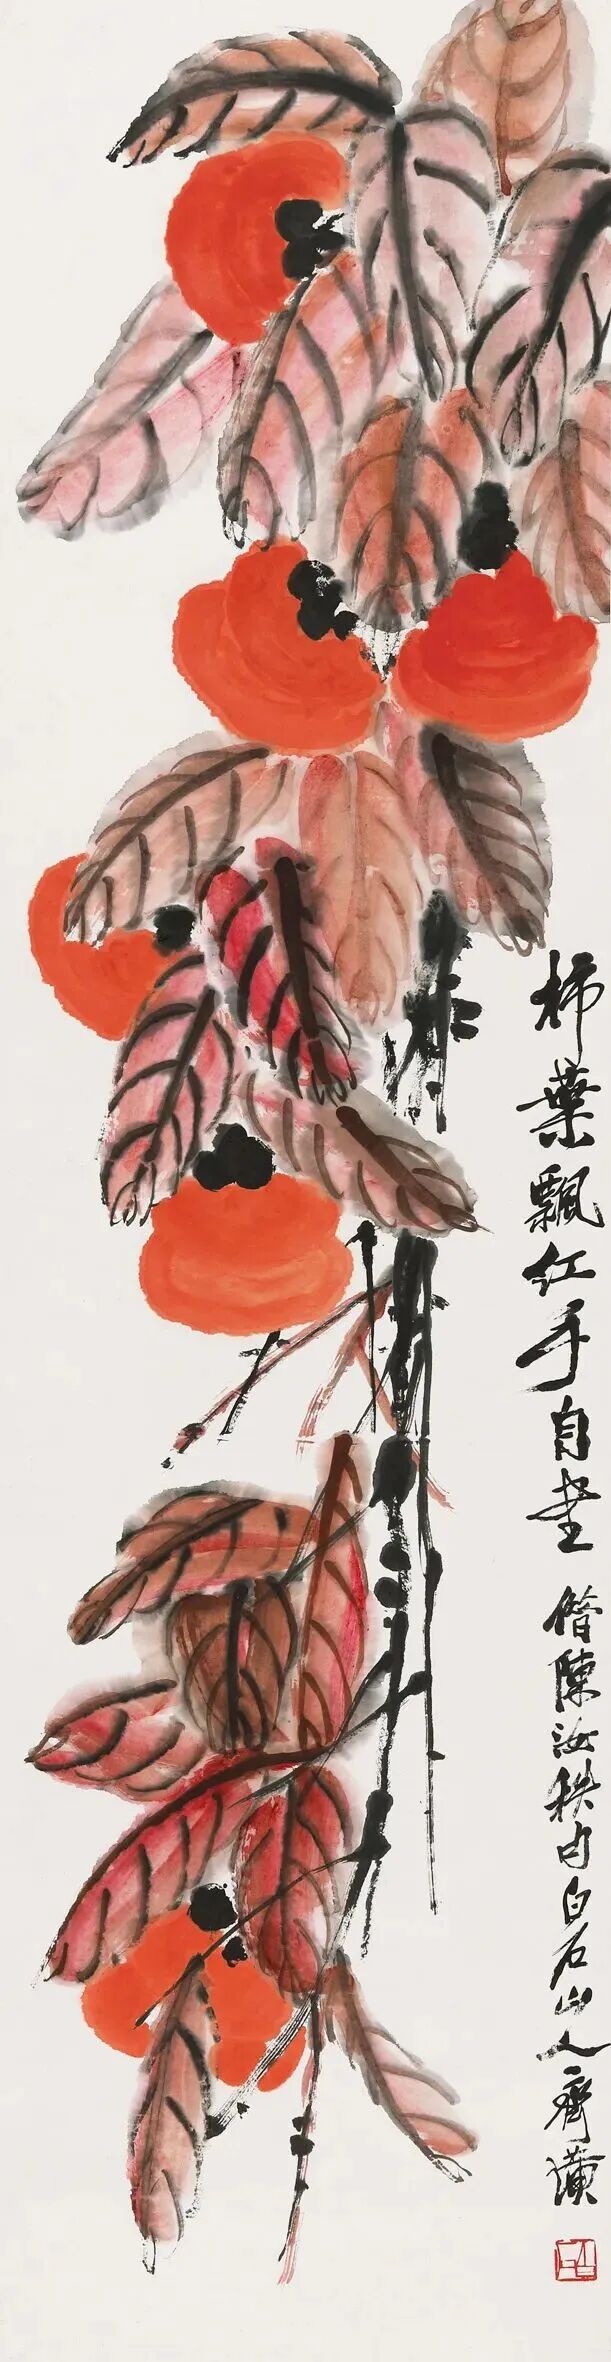 柿葉飄紅手自書
借陳汝秩句白石山人齊璜